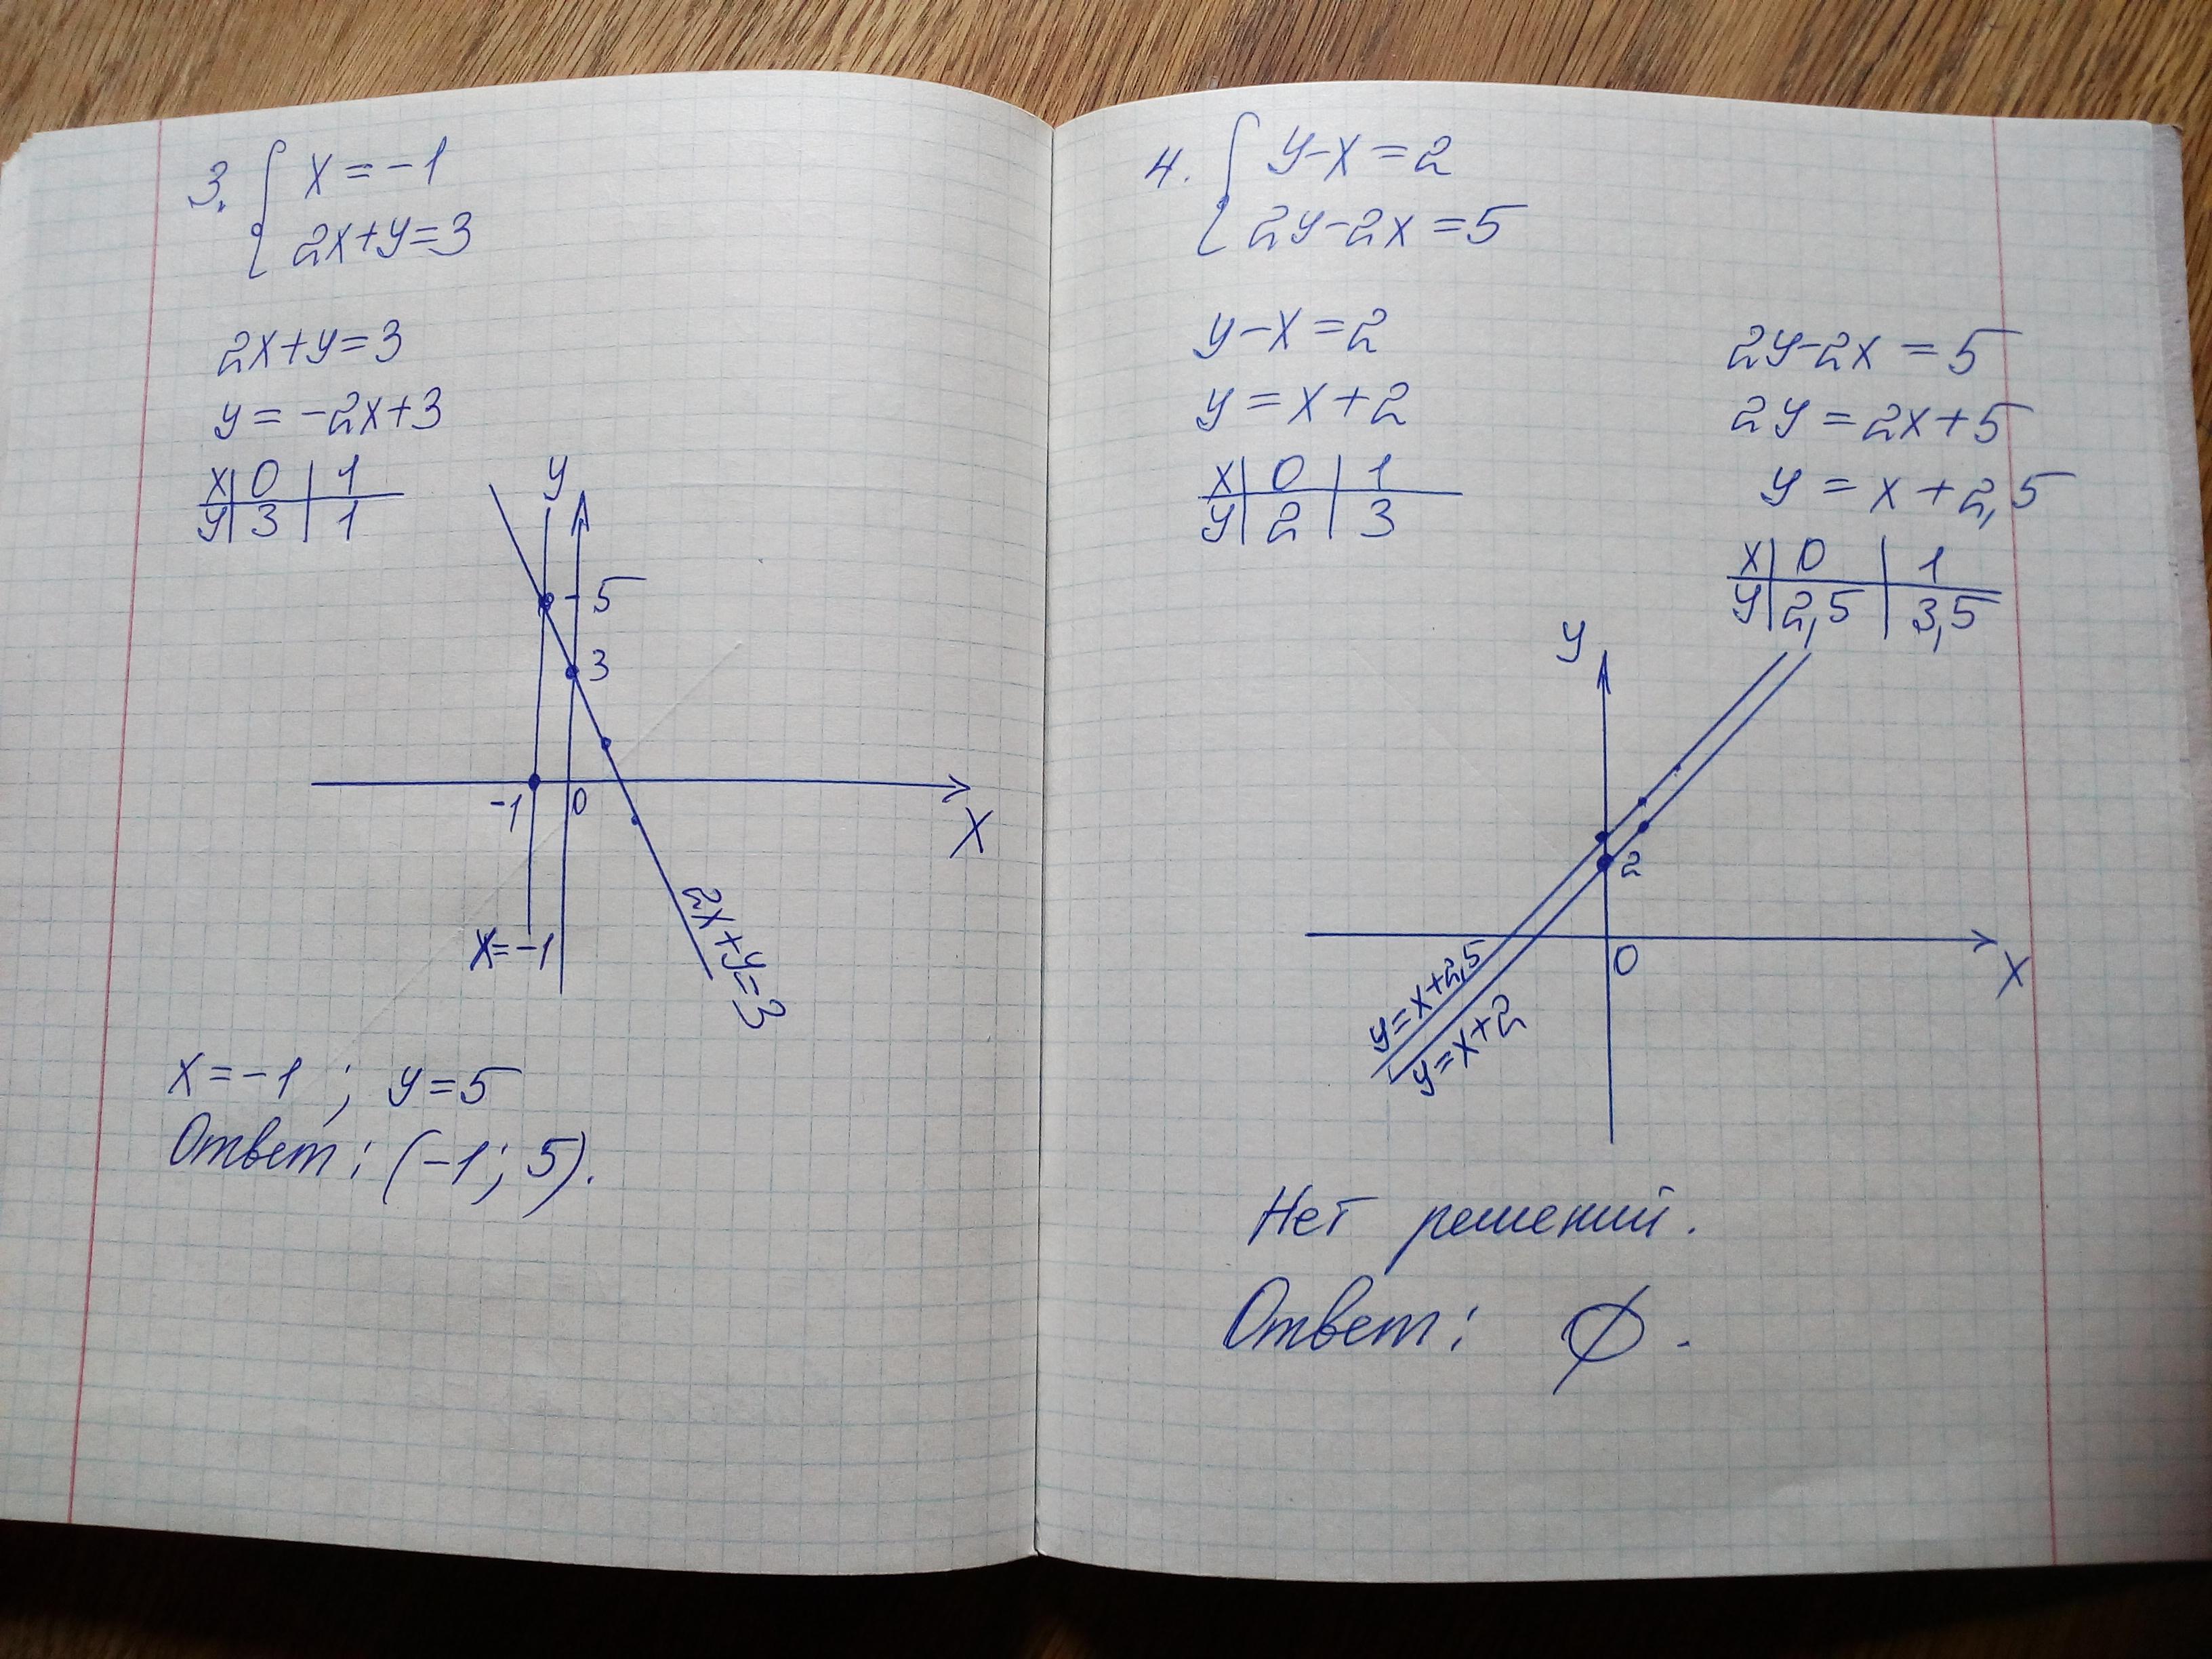 3. { x = -1
2x+y=3
2x+y=3
y = -2x+3
x | 0 | 1
y | 3 | 1
y
5
3
-1 0
x
x=-1
2x+y=3
x = -1 ; y = 5
Ответ: (-1; 5).
4. { y-x = 2
2y-2x = 5
y-x = 2
y = x+2
x | 0 | 1
y | 2 | 3
2y-2x = 5
2y = 2x+5
y = x+2,5
x | 0 | 1
y | 2,5 | 3,5
y
2
0
x
y=x+2,5
y=x+2
Нет решений.
Ответ: ∅.